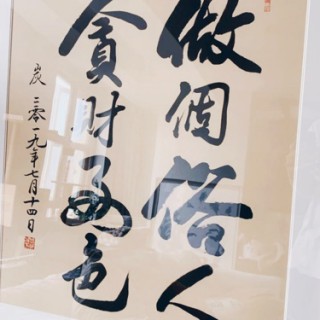 做個俗人
貪財好色
炭 二零一九年七月十四日